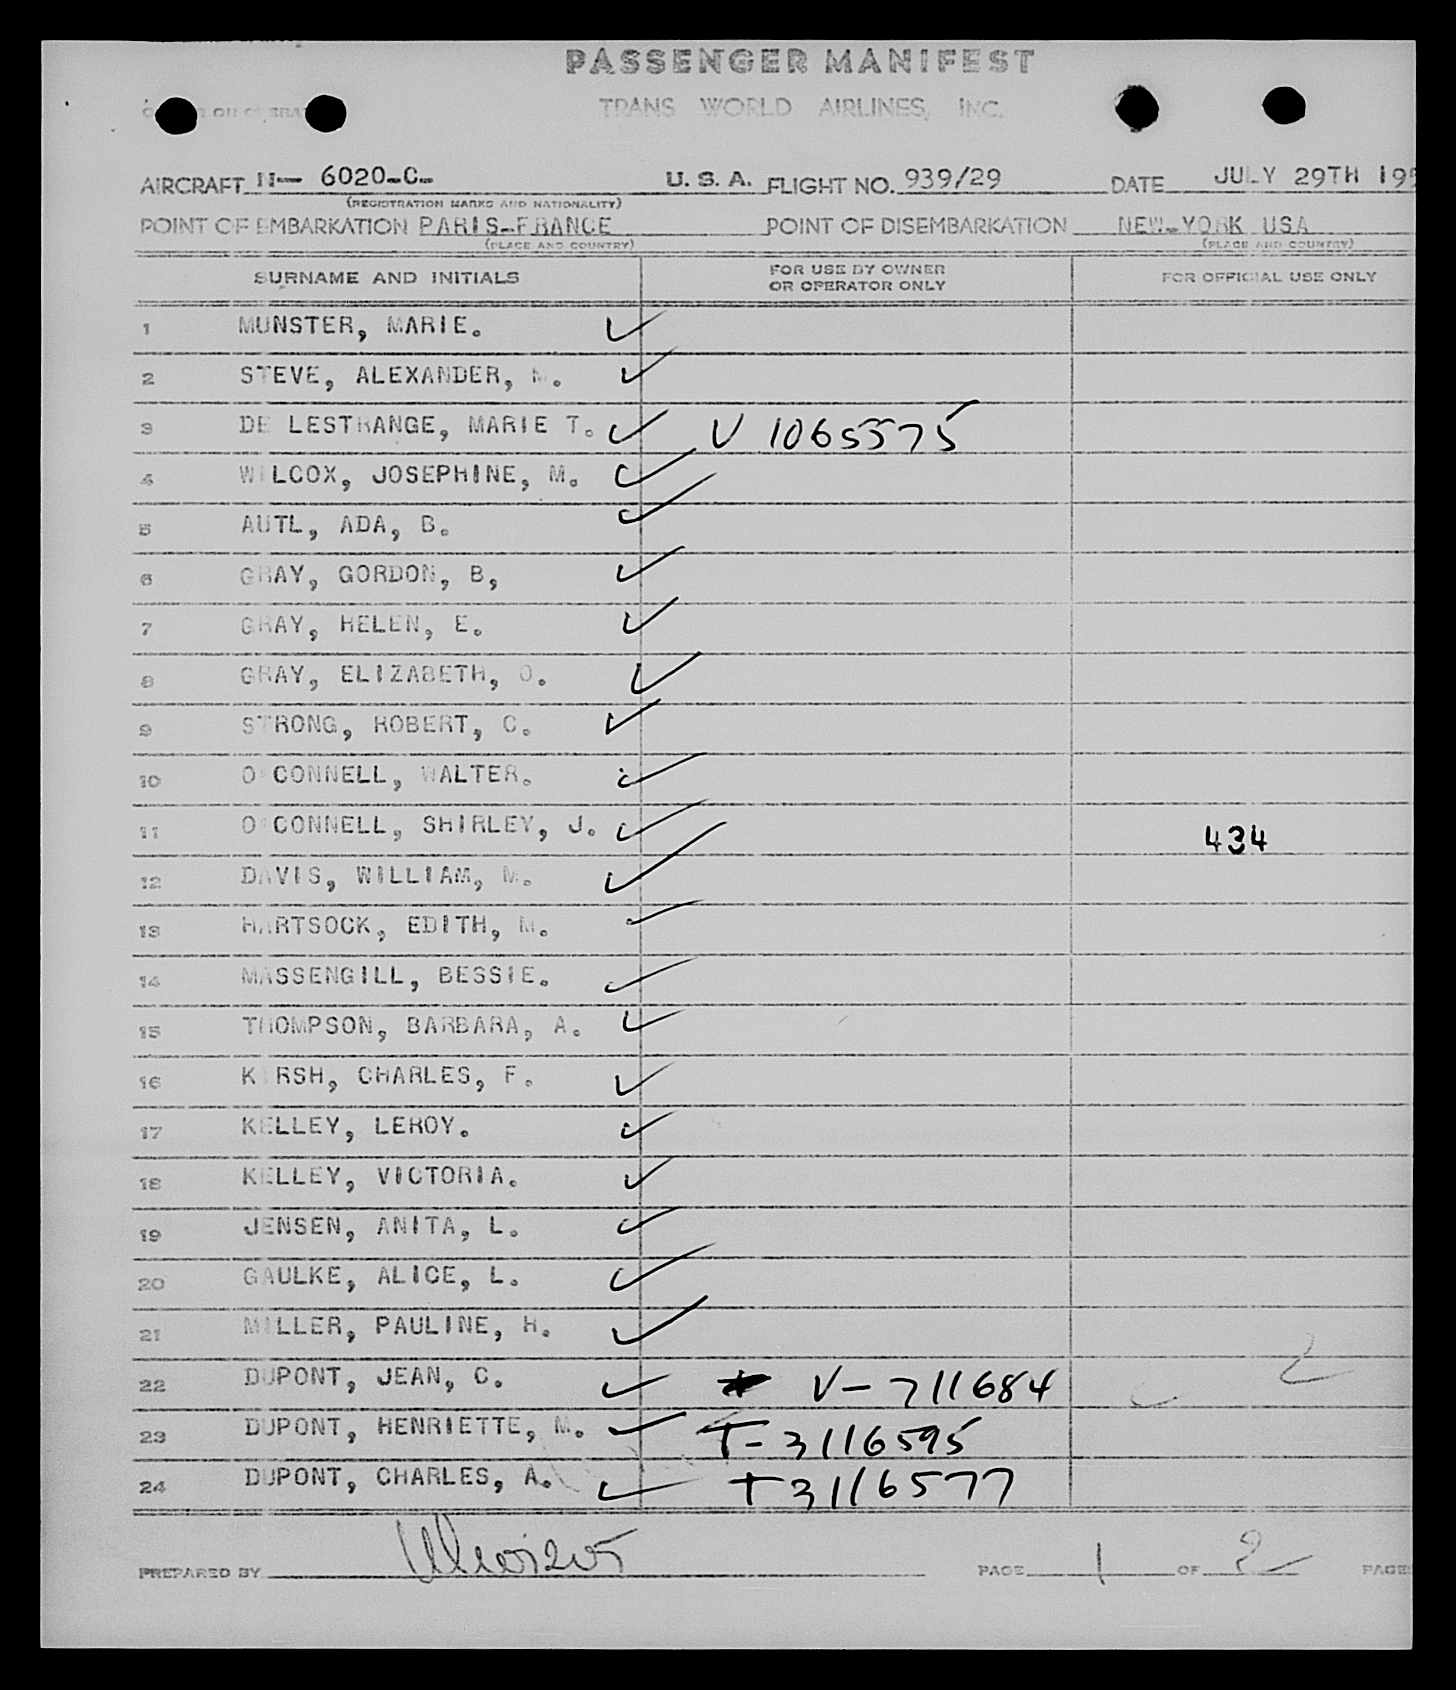 PASSENGER MANIFEST
TRANS WORLD AIRLINES, INC.
AIRCRAFT N- 6020-C- U. S. A. FLIGHT NO. 939/29 DATE JULY 29TH 195
(REGISTRATION MARKS AND NATIONALITY)
POINT OF EMBARKATION PARIS-FRANCE POINT OF DISEMBARKATION NEW-YORK USA
(PLACE AND COUNTRY) (PLACE AND COUNTRY)
SURNAME AND INITIALS FOR USE BY OWNER OR OPERATOR ONLY FOR OFFICIAL USE ONLY
1 MUNSTER, MARIE.
2 STEVE, ALEXANDER, M.
3 DE LESTRANGE, MARIE T. V 1065575
4 WILCOX, JOSEPHINE, M.
5 AUTL, ADA, B.
6 GRAY, GORDON, B,
7 GRAY, HELEN, E.
8 GRAY, ELIZABETH, O.
9 STRONG, ROBERT, C.
10 O'CONNELL, WALTER.
11 O'CONNELL, SHIRLEY, J. 434
12 DAVIS, WILLIAM, M.
13 HARTSOCK, EDITH, M.
14 MASSENGILL, BESSIE.
15 THOMPSON, BARBARA, A.
16 KIRSH, CHARLES, F.
17 KELLEY, LEROY.
18 KELLEY, VICTORIA.
19 JENSEN, ANITA, L.
20 GAULKE, ALICE, L.
21 MILLER, PAULINE, H.
22 DUPONT, JEAN, C. V-711684
23 DUPONT, HENRIETTE, M. T-3116595
24 DUPONT, CHARLES, A. T3116577
PREPARED BY PAGE 1 OF 2 PAGE